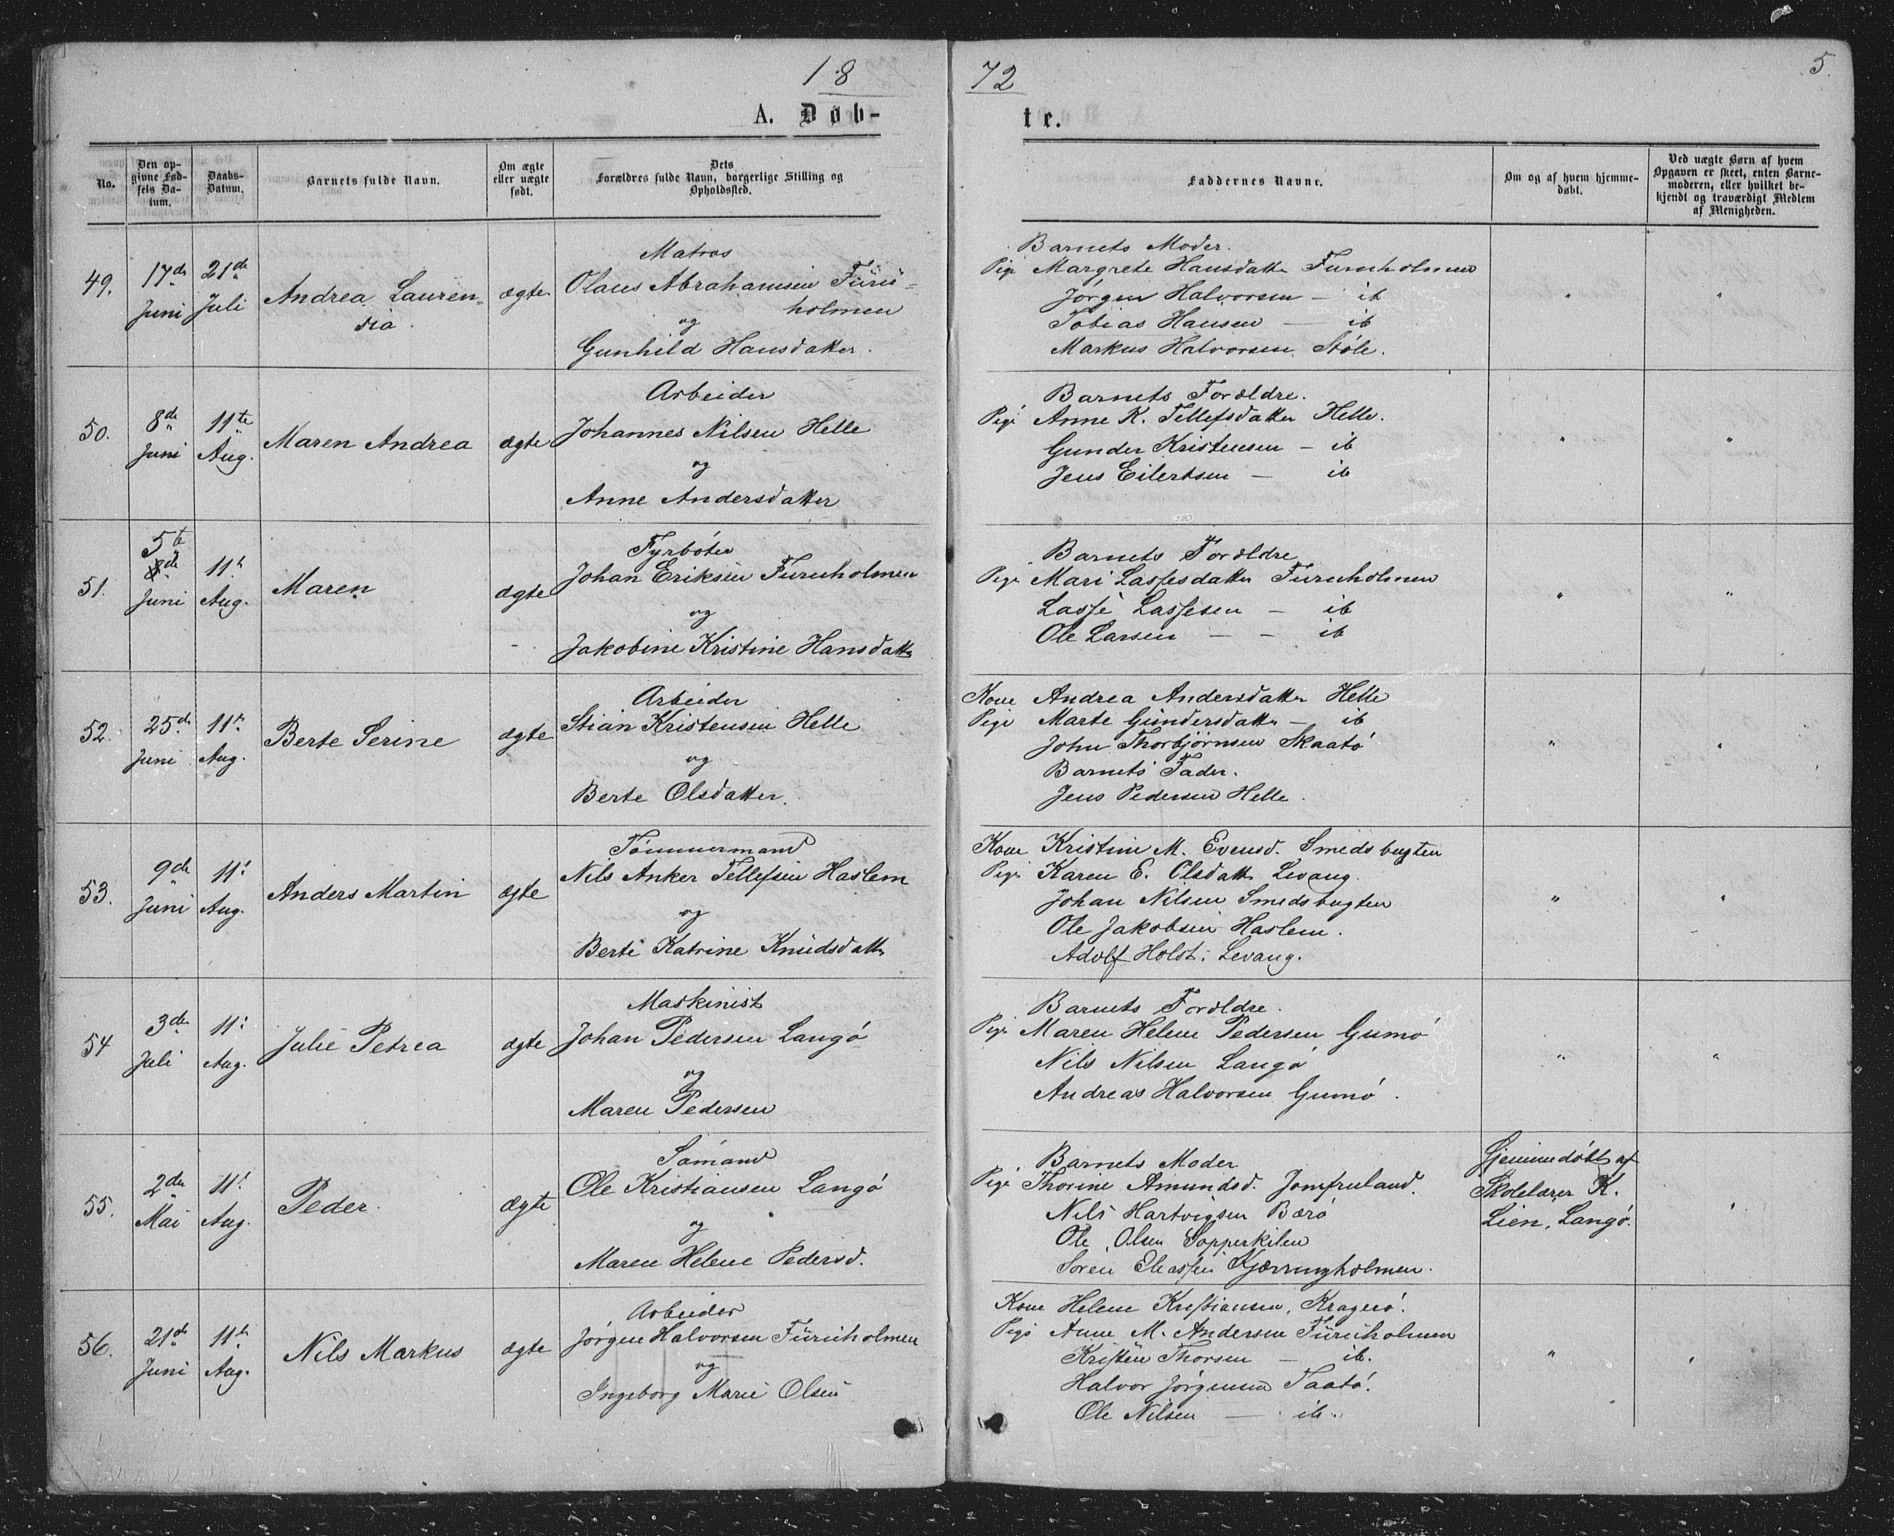 18
72
5.
A. Døb-
te.
No.
Den op-
givne Fød-
sels Da-
tum.
Daabs-
Datum.
Barnets fulde Navn.
Om ægte
eller uægte
født.
Dets
Forældres fulde Navn, borgerlige Stilling og
Opholdssted.
Faddernes Navne.
Om og af hvem hjemme-
døbt.
Ved uægte Børn af hvem
Opgaven er skeet, enten Barne-
moderen, eller hvilket be-
kjendt og troværdigt Medlem
af Menigheden.
49.
17de
Juni
21de
Juli
Andrea Lauren-
dia.
ægte
Matros
Olaus Abrahamsen Furu-
holmen
og
Gunhild Hansdatter.
Barnets Moder.
Pige Margrete Hansdatter Furuholmen
Jørgen Halvorsen – ib
Tobias Hansen – ib
Markus Halvorsen Støle.
"
"
50.
8de
Juni
11te
Aug.
Maren Andrea
ægte
Arbeider
Johannes Nilsen Helle
og
Anne Andersdatter
Barnets Forældre.
Pige Anne K. Tellefsdatter Helle.
Gunder Kristensen – ib
Jens Eilertsen – ib
"
"
51.
5te
8de
Juni
11te
Aug.
Maren
ægte
Fyrbøter
Johan Eriksen Furuholmen
og
Jakobine Kristine Hansdatter
Barnets Forældre
Pige Mari Lassesdatter Furuholmen
Lasse Lassesen – ib
Ole Larsen – – ib
"
"
52.
25de
Juni
11te
Aug.
Berte Serine
ægte
Arbeider
Stian Kristensen Helle
og
Berte Olsdatter.
Kone Andrea Andersdatter Helle
Pige Marte Gundersdatter – ib
John Thorbjørnsen Skaatø
Barnets Fader.
Jens Pedersen Helle.
"
"
53.
9de
Juni
11te
Aug.
Anders Martin
ægte
Tømmermand
Nils Anker Tellefsen Haslem
og
Berte Katrine Knudsdatter
Kone Kristine M. Evensd. Smedsbugten
Pige Karen E. Olsdatt. Levang.
Johan Nilsen Smedsbugten
Ole Jakobsen Haslem.
Adolf Holst. Levang.
"
"
54
3de
Juli
11te
Aug.
Julie Petrea
ægte
Maskinist
Johan Pedersen Langø
og
Maren Pedersen
Barnets Forældre.
Pige Maren Helene Pedersen Gumø
Nils Nilsen Langø
Andreas Halvorsen Gumø.
"
"
55.
2den
Mai
11te
Aug.
Peder.
ægte
Sømand
Ole Kristiansen Langø
og
Maren Helene Pedersd.
Barnets Moder
Pige Thorine Amundsd. Jomfruland.
Nils Hartvigsen Bærø
Ole Olsen Sopperkilen
Søren Eliassen Kjærringholmen.
Hjemmedøbt af
Skolelærer K.
Lien, Langø.
"
56.
21de
Juni
11te
Aug.
Nils Markus
ægte
Arbeider
Jørgen Halvorsen Furuholmen
og
Ingeborg Marie Olsen
Kone Helene Kristiansen, Kragerø.
Pige Anne M. Andersen Furuholmen
Kristen Thorsen – ib.
Halvor Jørgensen Taatø.
Ole Nilsen – ib.
"
"